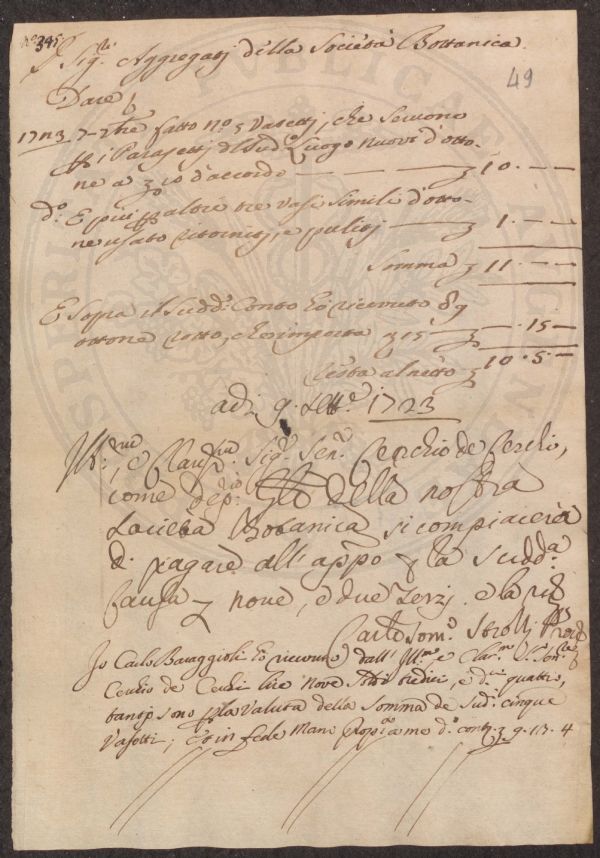 No 395
Sig.ri Aggregatj della Società Bottanica.
49
Dare
1723 7-bre fatto no. 5 Vasettj, che servono
i Parasettj del Sud.o Luogo nuovi d'otto-
ne a 10 d'accordo — 10. — —
d.o E più altri tre vasi simili d'otto-
ne usato ritornitj, e pulitj — 1. — —
Somma 11 — —
E Sopra il Sudd.o Conto hò ricevuto 9
ottone rotto, che importa 15 — . 15 —
Resta al netto 10. 5 —
adi 9. Sett.e 1723
Ill.mo, e Clariss.mo Sig.r Sen.r Cerchio de Cerchi,
come Dep.rio della nostra
Società Botanica si compiacerà
di pagare all'app.o la sudd.a
Causa nove, e due terzj. e la
Carlo Tom.o Strozzj
Io Carlo Baraggioli hò ricevuto dall'Ill.mo, e Clar.mo S. Sen.re
Cerchio de Cerchi lire nove Soldi tredici, e d.i quattro,
tantj sono p la Valuta della Somma de Sud.i cinque
Vasetti; et in fede Mano Propia mo d.o cont. 9. 13. 4